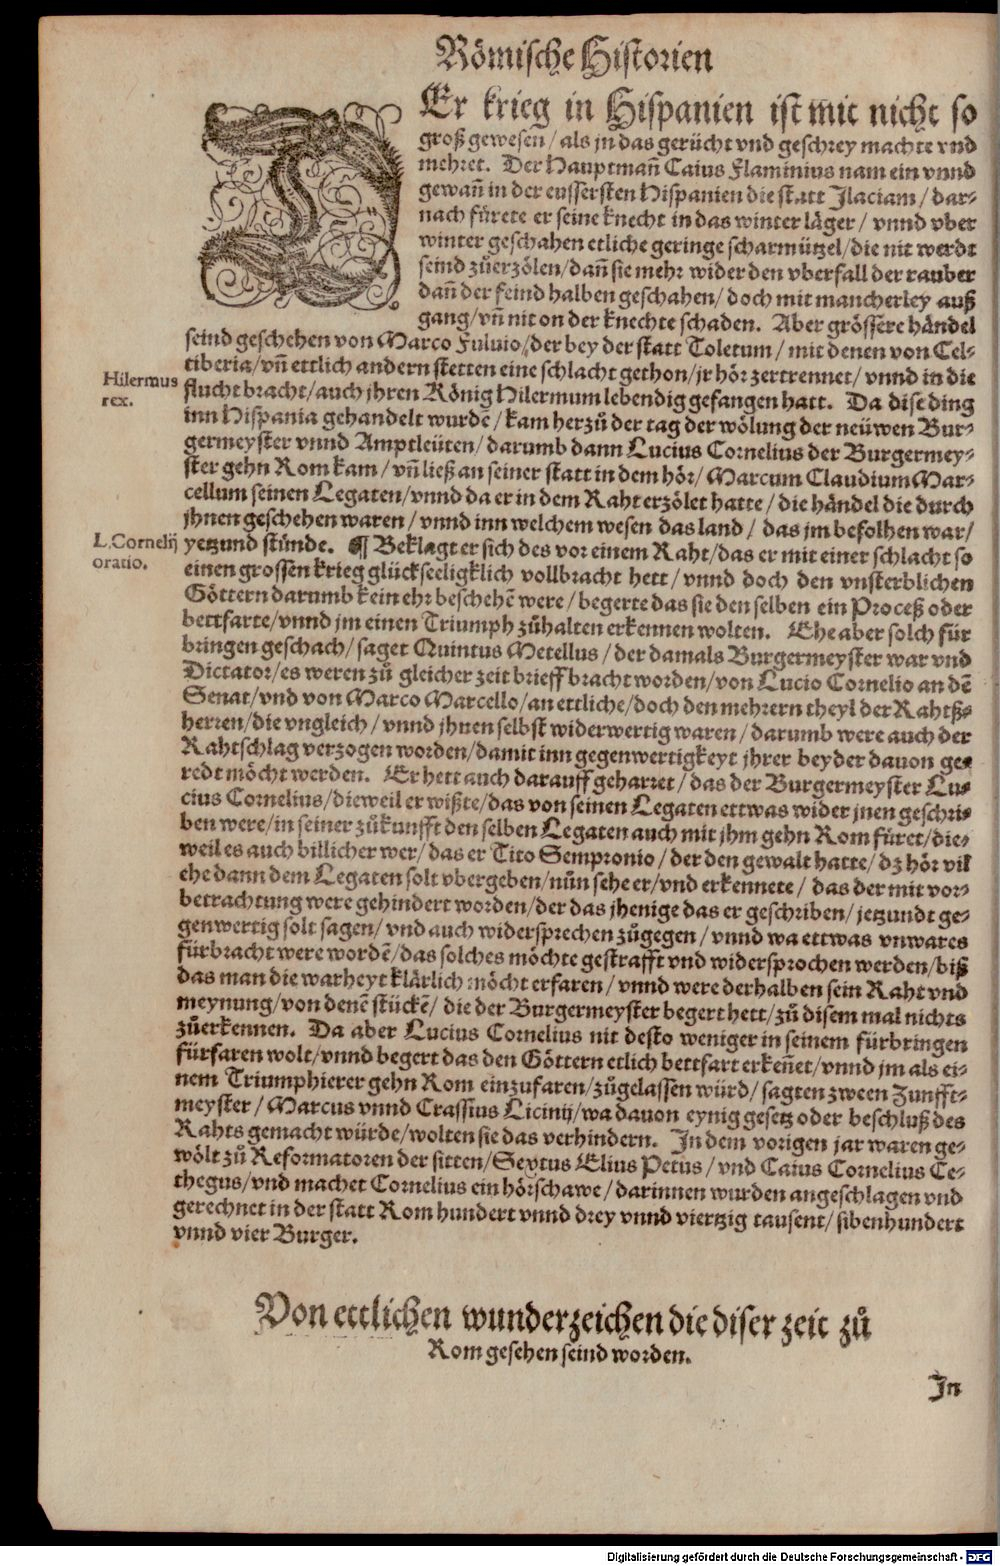 Römische Historien
DEr krieg in Hispanien ist mit nicht so
groß gewesen / als jn das gerücht vnd geschrey machte vnd
mehret. Der Hauptmañ Caius Flaminius nam ein vnnd
gewañ in der eussersten Hispanien die statt Jlaciam / dar⸗
nach fürete er seine knecht in das winter läger / vnnd vber
winter geschahen etliche geringe scharmützel / die nit werdt
seind zůerzölen / dañ sie mehr wider den vberfall der rauber
dañ der feind halben geschahen / doch mit mancherley auß
gang / vñ nit on der knechte schaden. Aber grössere händel
seind geschehen von Marco Fuluio / der bey der statt Toletum / mit denen von Cel⸗
tiberia / vñ ettlich andern stetten eine schlacht gethon / jr hör zertrennet / vnnd in die
Hilermus
rex.
flucht bracht / auch jhren König Hilermum lebendig gefangen hatt. Da dise ding
inn Hispania gehandelt wurdẽ / kam herzů der tag der wölung der neüwen Bur⸗
germeyster vnnd Amptleüten / darumb dann Lucius Cornelius der Burgermey⸗
ster gehn Rom kam / vñ ließ an seiner statt in dem hör / Marcum Claudium Mar⸗
cellum seinen Legaten / vnnd da er in dem Raht erzölet hatte / die händel die durch
jhnen geschehen waren / vnnd inn welchem wesen das land / das jm befolhen war /
L. Cornelij
oratio.
yetzund stünde. ¶ Beklagt er sich des vor einem Raht / das er mit einer schlacht so
einen grossen krieg glückseeligklich vollbracht hett / vnnd doch den vnsterblichen
Göttern darumb kein ehr beschehẽ were / begerte das sie den selben ein Proceß oder
bettfarte / vnnd jm einen Triumph zůhalten erkennen wolten. Ehe aber solch für
bringen geschach / saget Quintus Metellus / der damals Burgermeyster war vnd
Dictator / es weren zů gleicher zeit brieff bracht worden / von Lucio Cornelio an dẽ
Senat / vnd von Marco Marcello / an ettliche / doch den mehrern theyl der Rahtß⸗
herren / die vngleich / vnnd jhnen selbst widerwertig waren / darumb were auch der
Rahtschlag verzogen worden / damit inn gegenwertigkeyt jhrer beyder dauon ge⸗
redt möcht werden. Er hett auch darauff geharret / das der Burgermeyster Lu⸗
cius Cornelius / dieweil er wißte / das von seinen Legaten ettwas wider jnen geschri⸗
ben were / in seiner zůkunfft den selben Legaten auch mit jhm gehn Rom füret / die⸗
weil es auch billicher wer / das er Tito Sempronio / der den gewalt hatte / dz hör vil
ehe dann dem Legaten solt vbergeben / nün sehe er / vnd erkennete / das der mit vor⸗
betrachtung were gehindert worden / der das jhenige das er geschriben / jetzundt ge⸗
genwertig solt sagen / vnd auch widersprechen zůgegen / vnnd wa ettwas vnwares
fürbracht were wordẽ / das solches möchte gestrafft vnd widersprochen werden / biß
das man die warheyt klärlich möcht erfaren / vnnd were derhalben sein Raht vnd
meynung / von denẽ stückẽ / die der Burgermeyster begert hett / zů disem mal nichts
zůerkennen. Da aber Lucius Cornelius nit desto weniger in seinem fürbringen
fürfaren wolt / vnnd begert das den Göttern etlich bettfart erkeñet / vnnd jm als ei⸗
nem Triumphierer gehn Rom einzufaren / zůgelassen würd / sagten zween Zunfft⸗
meyster / Marcus vnnd Crassius Licinij / wa dauon eynig gesetz oder beschluß des
Rahts gemacht würde / wolten sie das verhindern. Jn dem vorigen jar waren ge⸗
wölt zů Reformatoren der sitten / Sextus Elius Petus / vnd Caius Cornelius Ce⸗
thegus / vnd machet Cornelius ein hörschawe / darinnen wurden angeschlagen vnd
gerechnet in der statt Rom hundert vnnd drey vnnd viertzig tausent / sibenhundert
vnnd vier Burger.
Von ettlichen wunderzeichen die diser zeit zů
Rom gesehen seind worden.
Jn
Digitalisierung gefördert durch die Deutsche Forschungsgemeinschaft - DFG